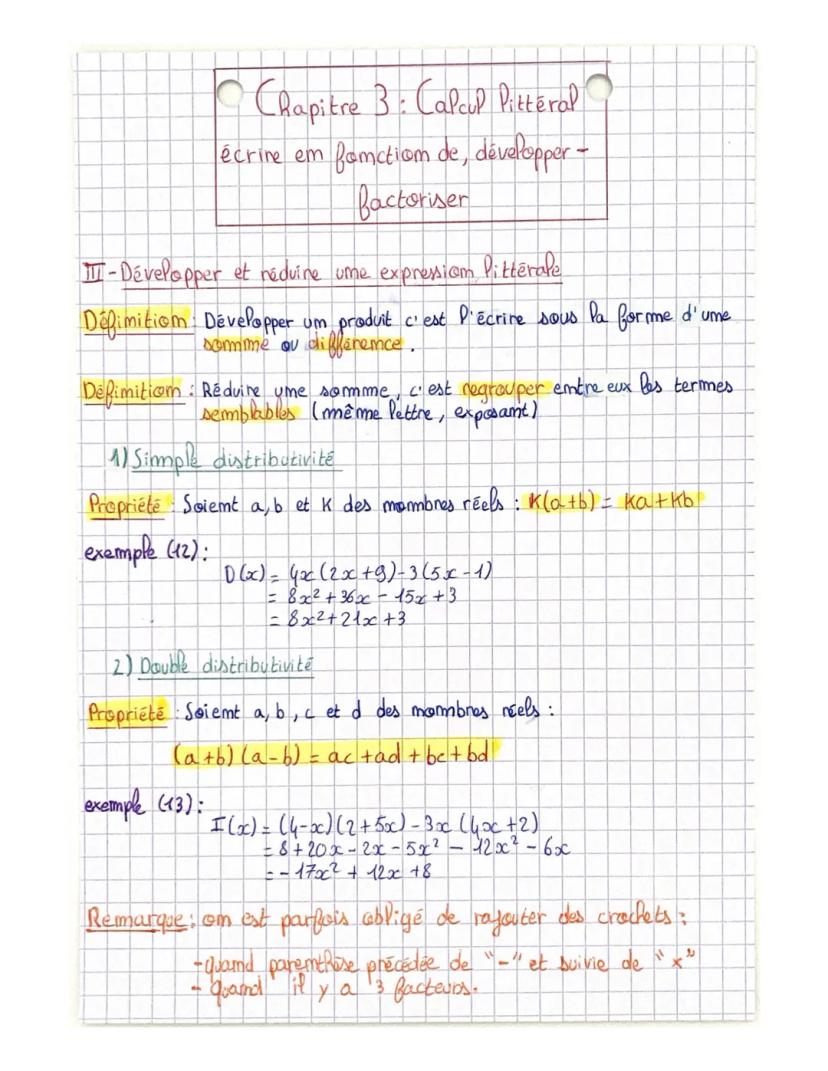 Chapitre 3 : Calcul littéral
écrire en fonction de, développer -
factoriser
III - Développer et réduire une expression littérale
Définition : Développer un produit c'est l'écrire sous la forme d'une
somme ou différence.
Définition : Réduire une somme, c'est regrouper entre eux les termes
semblables (même lettre, exposant)
1) Simple distributivité
Propriété : Soient a, b et K des nombres réels : K(a+b) = Ka+Kb
exemple (12) :
D(x) = 4x(2x+9)-3(5x-1)
= 8x²+36x-15x+3
= 8x²+21x+3
2) Double distributivité
Propriété : Soient a, b, c et d des nombres réels :
(a+b)(a-b) = ac+ad+bc+bd
exemple (13) :
I(x) = (4-x)(2+5x)-3x(4x+2)
= 8+20x-2x-5x²-12x²-6x
= -17x²+12x+8
Remarque : on est parfois obligé de rajouter des crochets :
- quand parenthèse précédée de "-" et suivie de "x"
- quand il y a 3 facteurs.